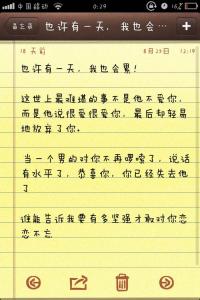 中国移动 0:29 16%
备忘录 也许有一天，我也会… +
18 天前 8月29日 12:19
也许有一天，我也会累！
这世上最难堪的事不是他不爱你，
而是他说很爱很爱你，最后却轻易
地放弃了你。
当一个男的对你不再啰嗦了，说话
有水平了，恭喜你，你已经失去他
了
谁能告诉我要有多坚强才敢对你念
念不忘